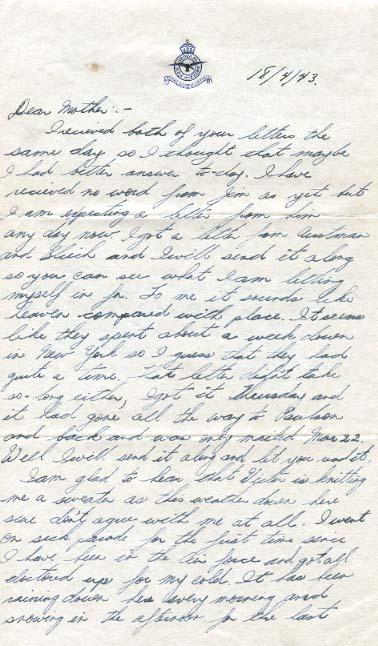 18/4/43.
Dear Mother:-
I recieved both of your letters the
same day so I thought that maybe
I had better answer to-day. I have
recieved no word from Jim as yet but
I am expecting a letter from him
any day now. I got a letter from
and and I will send it along
so you can see what I am letting
myself in for. To me it sounds like
heaven compared with place. It seems
like they spent about a week down
in New York so I guess that they had
quite a time. That letter didn't take
so long either, I got it Thursday and
it had gone all the way to Paulson
and back and was only mailed Mar 22.
Well I will send it along and let you read it.
I am glad to hear that is knitting
me a sweater as this weather down here
sure don't agree with me at all. I went
on sick parade for the first time since
I have been in the Air Force and got all
doctored up for my cold. It has been
raining down here every morning and
snowing in the afternoon for the last